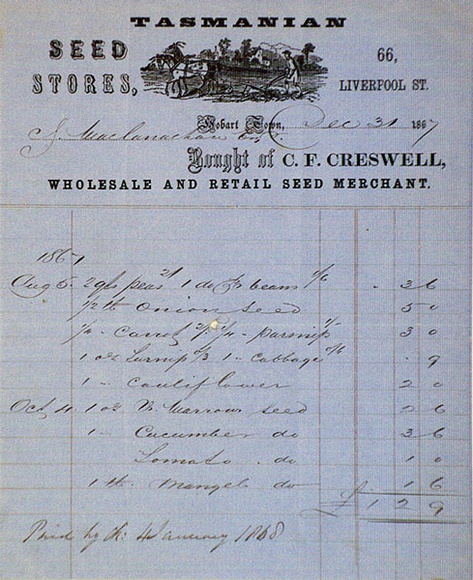 TASMANIAN
SEED STORES,
66, LIVERPOOL ST.
Hobart Town, Dec 31 1867
J. Maclanachan Esqr.
Bought of C. F. CRESWELL,
WHOLESALE AND RETAIL SEED MERCHANT.
1867
Aug 5 2 qts peas 2/ 1 do beans 1/6 3 6
1/2 lb onion seed 5 0
1/4 - Carrot 2/ 1/4 - parsnip 1/- 3 0
1 oz Turnip /3 1 - Cabbage /6 . 9
1 - Cauliflower 2 0
Oct 4 1 oz V. Marrow seed 2 6
1 - Cucumber do 3 6
Tomato . do 1 0
1 lb Mangel do 1 6
£ 1 2 9
Paid by ch: 4 January 1868